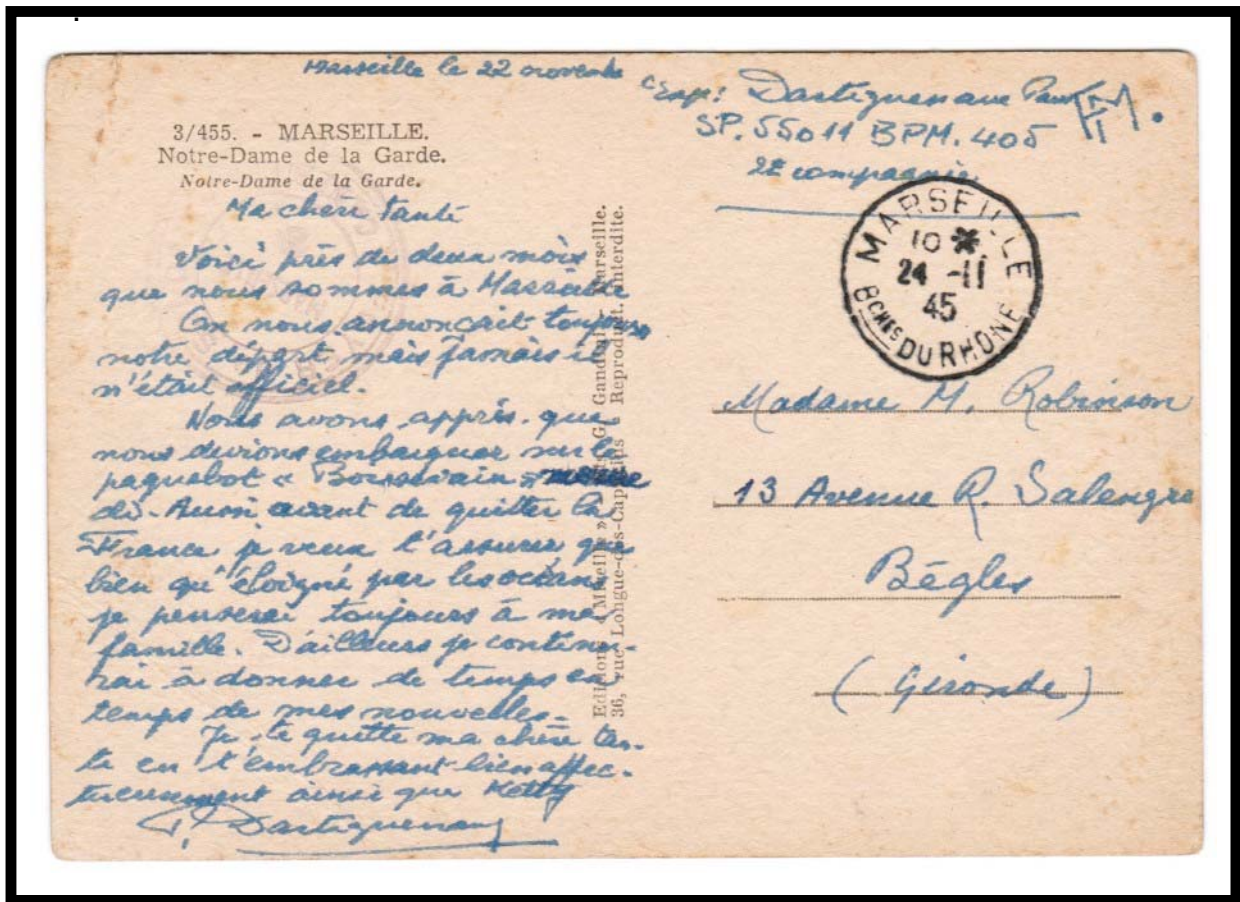 Marseille le 22 novembre
3/455. - MARSEILLE.
Notre-Dame de la Garde.
Notre-Dame de la Garde.
Ma chère tante
Voici près de deux mois
que nous sommes à Marseille
On nous annonçait toujours
notre départ mais jamais il
n'était officiel.
Nous avons appris que
nous devions embarquer sur le
paquebot « Boissevain »
di. Aussi avant de quitter la
France je veux t'assurer que
bien qu'éloigné par les océans
je penserai toujours à ma
famille. D'ailleurs je continu-
rai à donner de temps en
temps de mes nouvelles.
Je te quitte ma chère tan-
te en t'embrassant bien affec-
tueusement ainsi que Ketty
P. Dartiguenave
Editions « Mireille » Marseille.
36, rue Longue-des-Capucins - Reproduct. interdite.
Exp: Dartiguenave Paul F.M.
SP. 55011 BPM. 405
2E compagnie
MARSEILLE
10 *
24 -11
45
BCHES DU RHONE
Madame M. Robinson
13 Avenue R. Salengro
Bègles
(Gironde)